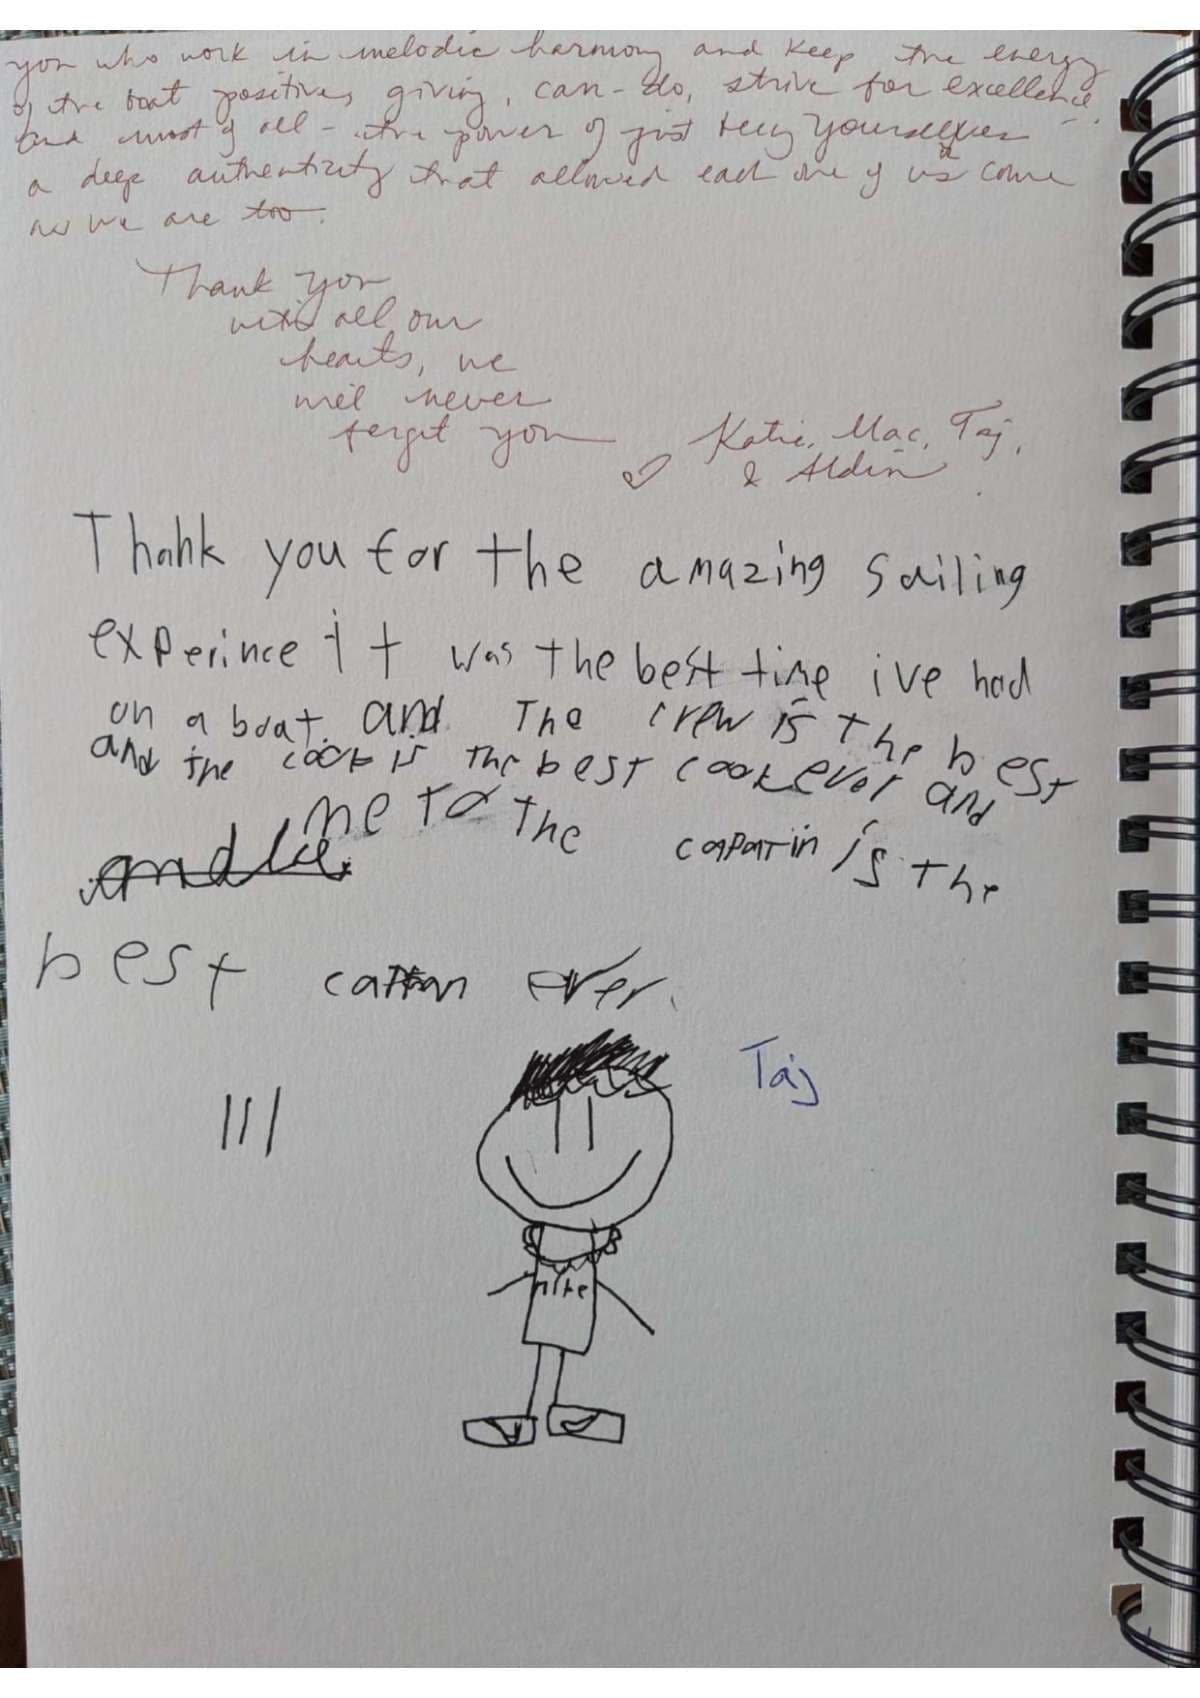 you who work in melodic harmony and keep the energy
of the boat positive, giving, can-do, strive for excellence
and most of all - the power of just being yourselves
a deep authenticity that allowed each one of us to come
as we are too.
Thank you
with all our
hearts, we
will never
forget you
Katie, Mac, Taj,
& Aldin
Thank you for the amazing sailing
experince it was the best time ive had
on a boat. and The crew is the best
and the cook is the best cook ever and
me to the capatin is the
best ever.
Taj
nike